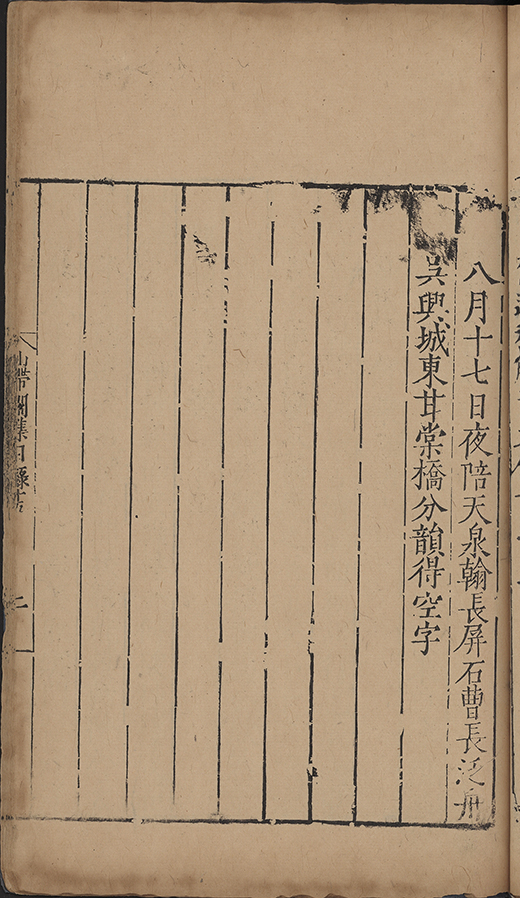 八月十七日夜陪天泉翰長屏石曹長泛舟
吳興城東甘棠橋分韻得空字
山帶閣集目錄
二